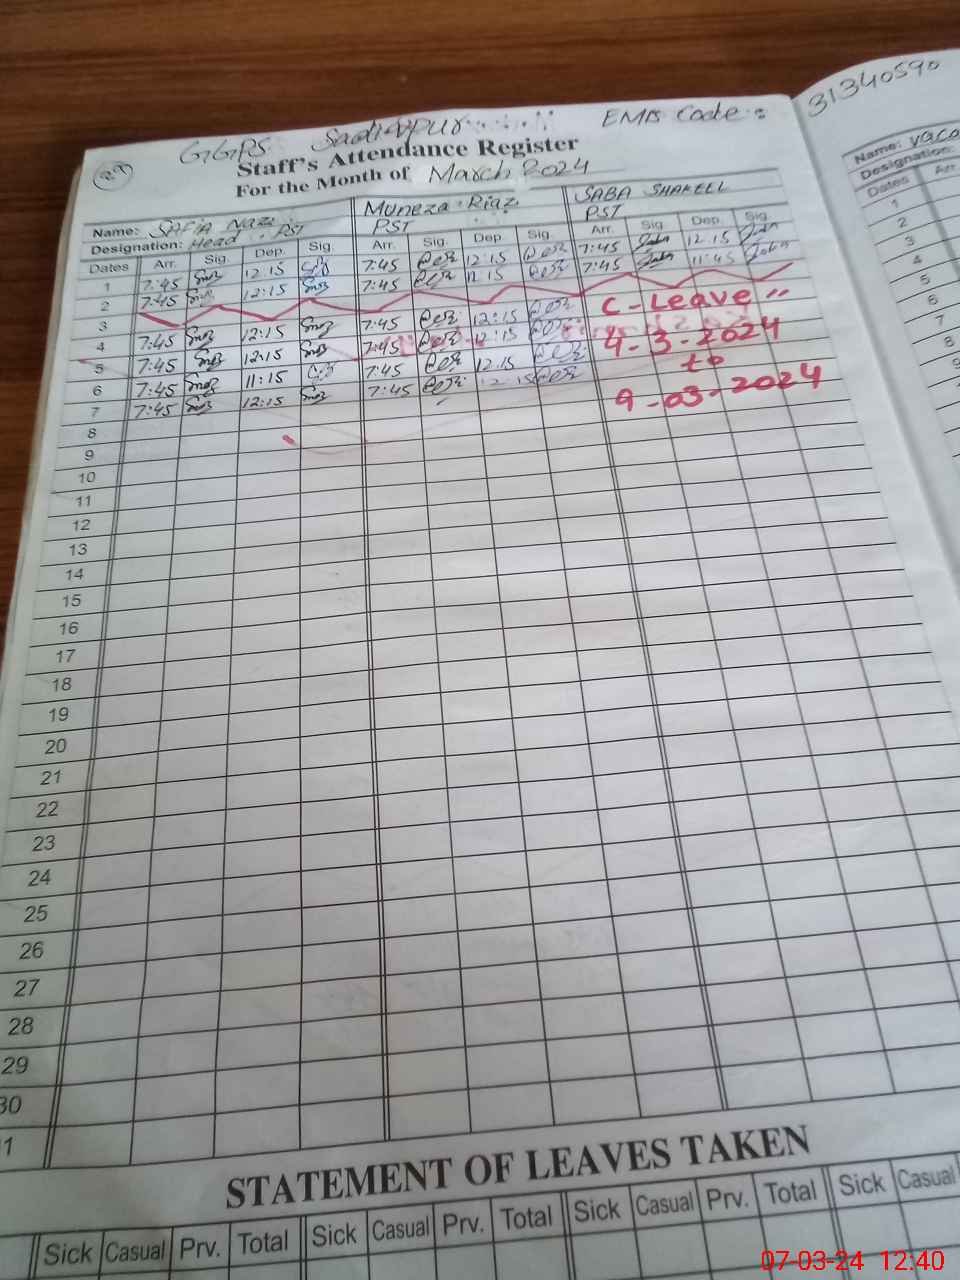 29
GGPS Sadiqpur EMIS Code :
31340590
Staff's Attendance Register
For the Month of March 2024
Name: SAFIA Naz Muneza Riaz SABA SHAKEEL
Designation: Head PST PST PST
Dates Arr. Sig. Dep. Sig. Arr. Sig. Dep. Sig. Arr. Sig. Dep. Sig.
1 7:45 12:15 7:45 12:15 7:45 12:15
2 7:45 12:15 7:45 12:15 7:45 11:45
3 C-Leave
4 7:45 12:15 7:45 12:15 4-3-2024
5 7:45 12:15 7:45 12:15 to
6 7:45 11:15 7:45 12:15 9-03-2024
7 7:45 12:15 7:45 12:15
8
9
10
11
12
13
14
15
16
17
18
19
20
21
22
23
24
25
26
27
28
29
30
1
STATEMENT OF LEAVES TAKEN
Sick Casual Prv. Total Sick Casual Prv. Total Sick Casual Prv. Total Sick Casual
Name:
Designation:
Dates Arr
1
2
3
4
5
6
7
8
07-03-24 12:40